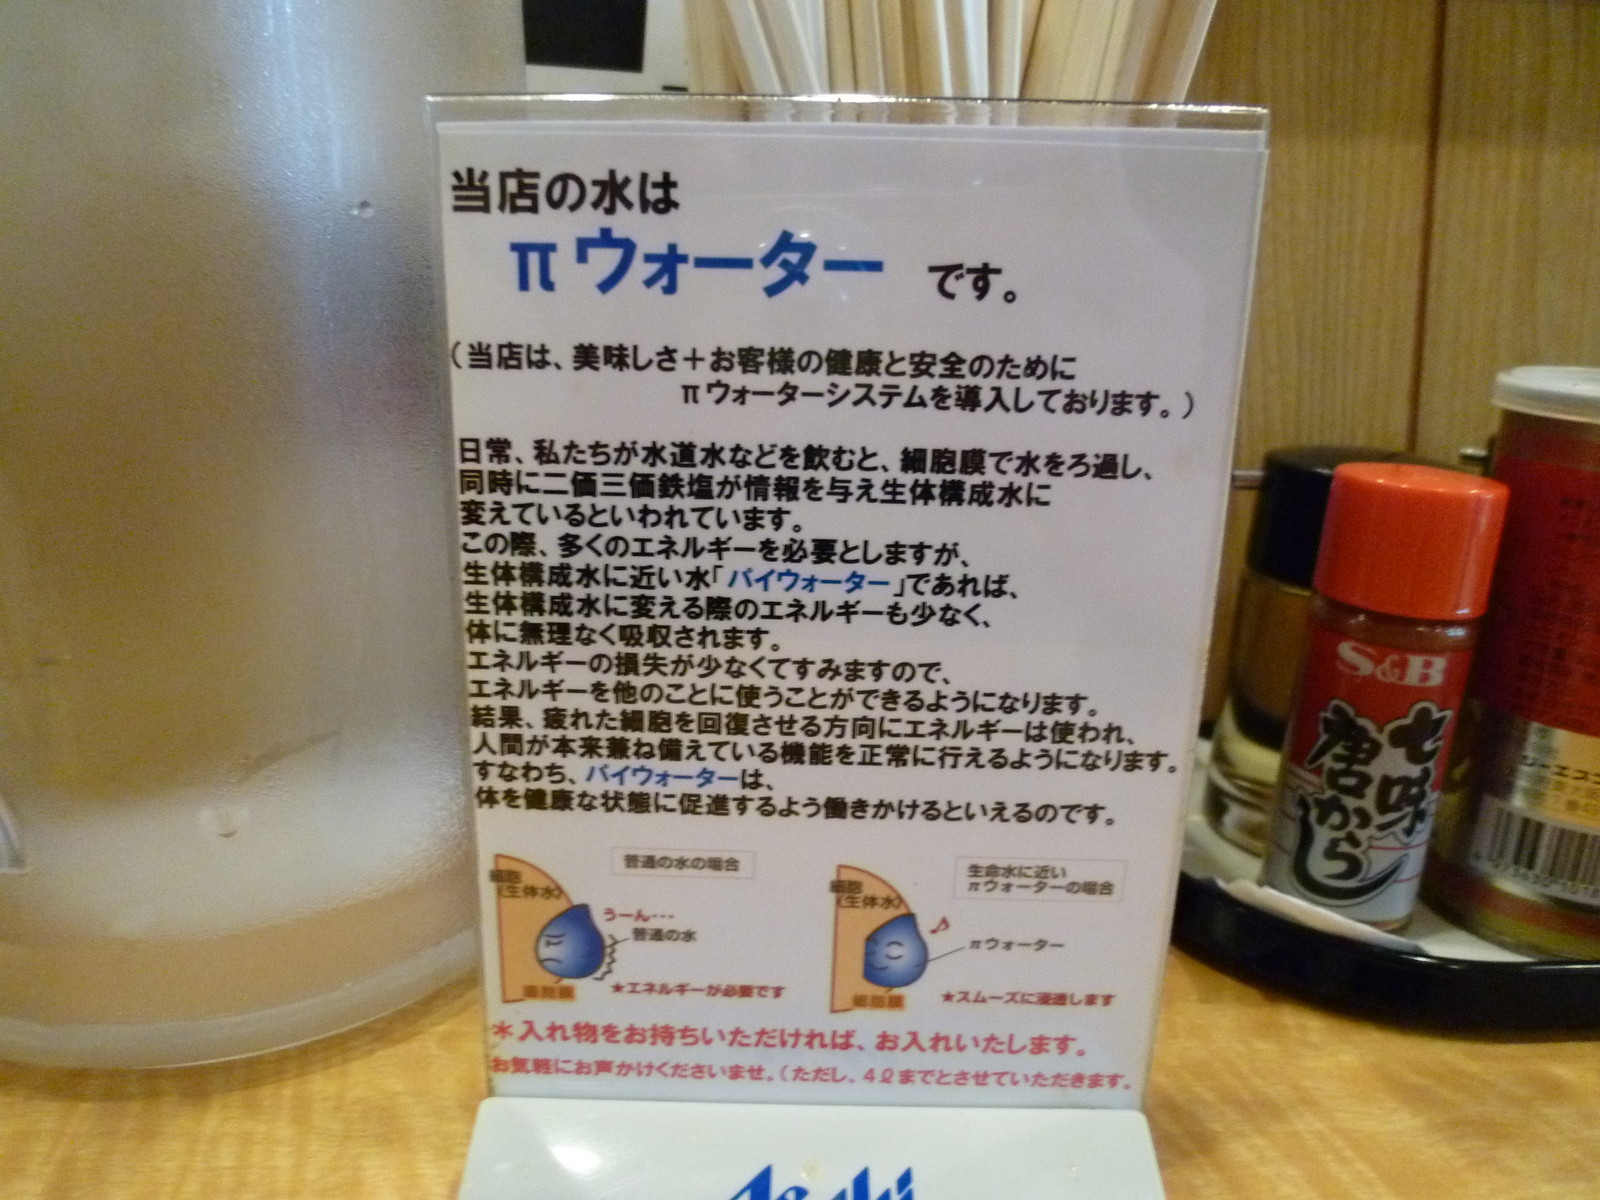 当店の水は
πウォーター です。
（当店は、美味しさ＋お客様の健康と安全のために
πウォーターシステムを導入しております。）
日常、私たちが水道水などを飲むと、細胞膜で水をろ過し、
同時に二価三価鉄塩が情報を与え生体構成水に
変えているといわれています。
この際、多くのエネルギーを必要としますが、
生体構成水に近い水「パイウォーター」であれば、
生体構成水に変える際のエネルギーも少なく、
体に無理なく吸収されます。
エネルギーの損失が少なくてすみますので、
エネルギーを他のことに使うことができるようになります。
結果、疲れた細胞を回復させる方向にエネルギーは使われ、
人間が本来兼ね備えている機能を正常に行えるようになります。
すなわち、パイウォーターは、
体を健康な状態に促進するよう働きかけるといえるのです。
普通の水の場合
細胞
（生体水）
うーん…
普通の水
細胞膜
★エネルギーが必要です
生命水に近い
πウォーターの場合
細胞
（生体水）
♪
πウォーター
細胞膜
★スムーズに浸透します
＊入れ物をお持ちいただければ、お入れいたします。
お気軽にお声かけくださいませ。（ただし、4ℓまでとさせていただきます。
Asahi
S&B
七味
唐からし